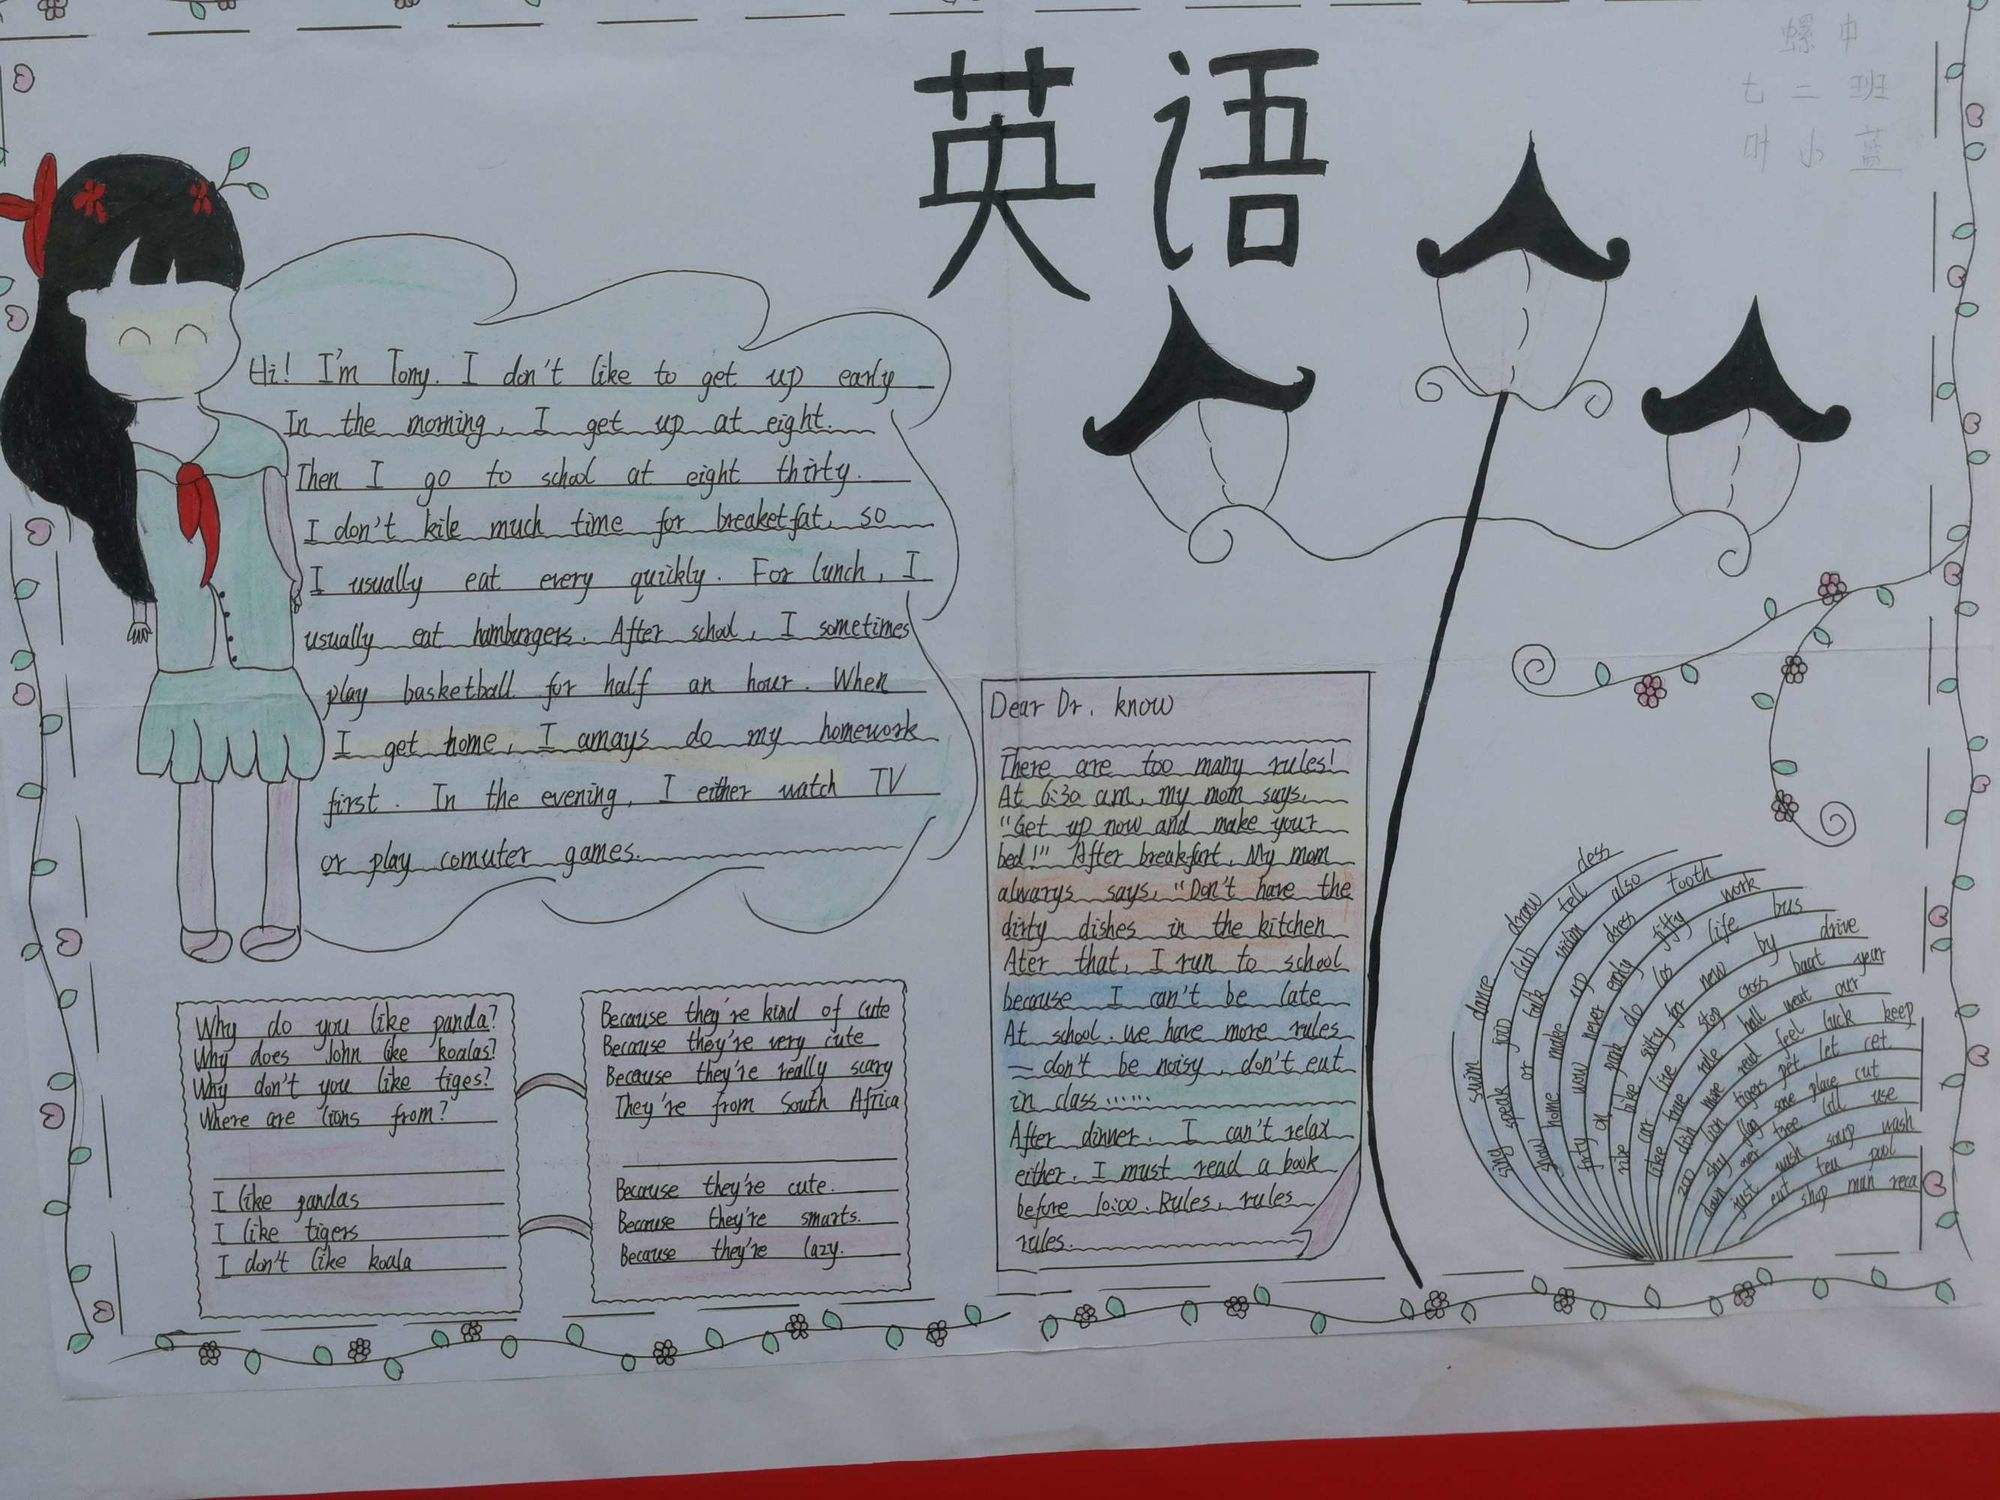 英语
螺中
七二班
叶小蓝
Hi! I'm Tony. I don't like to get up early
In the morning, I get up at eight.
Then I go to school at eight thirty.
I don't kile much time for breaketfat, so
I usually eat every quickly. For lunch, I
usually eat hamburgers. After school, I sometimes
play basketball for half an hour. When
I get home, I amays do my homework
first. In the evening, I either watch TV
or play comuter games.
Why do you like panda?
Why does John like koalas?
Why don't you like tiges?
Where are lions from?
I like pandas
I like tigers
I don't like koala
Because they're kind of cute
Because they're very cute
Because they're really scary
They're from South Africa
Because they're cute.
Because they're smarts.
Because they're lazy.
Dear Dr. know
There are too many rules!
At 6:30 am, my mom says,
"Get up now and make your
bed!" After breakfart, My mom
alwarys says, "Don't have the
dirty dishes in the kitchen
Ater that, I run to school
because I can't be late
At school, we have more rules
— don't be noisy, don't eat
in class ......
After dinner. I can't relax
either. I must read a book
before 10:00. Rules, rules
rules.
swim dance draw dess
sing speak join club tell also
or talk swim dress tooth
slow home make up fifty work
wow never only life bus
forty on do los new by drive
like sifty for stop cross boat year